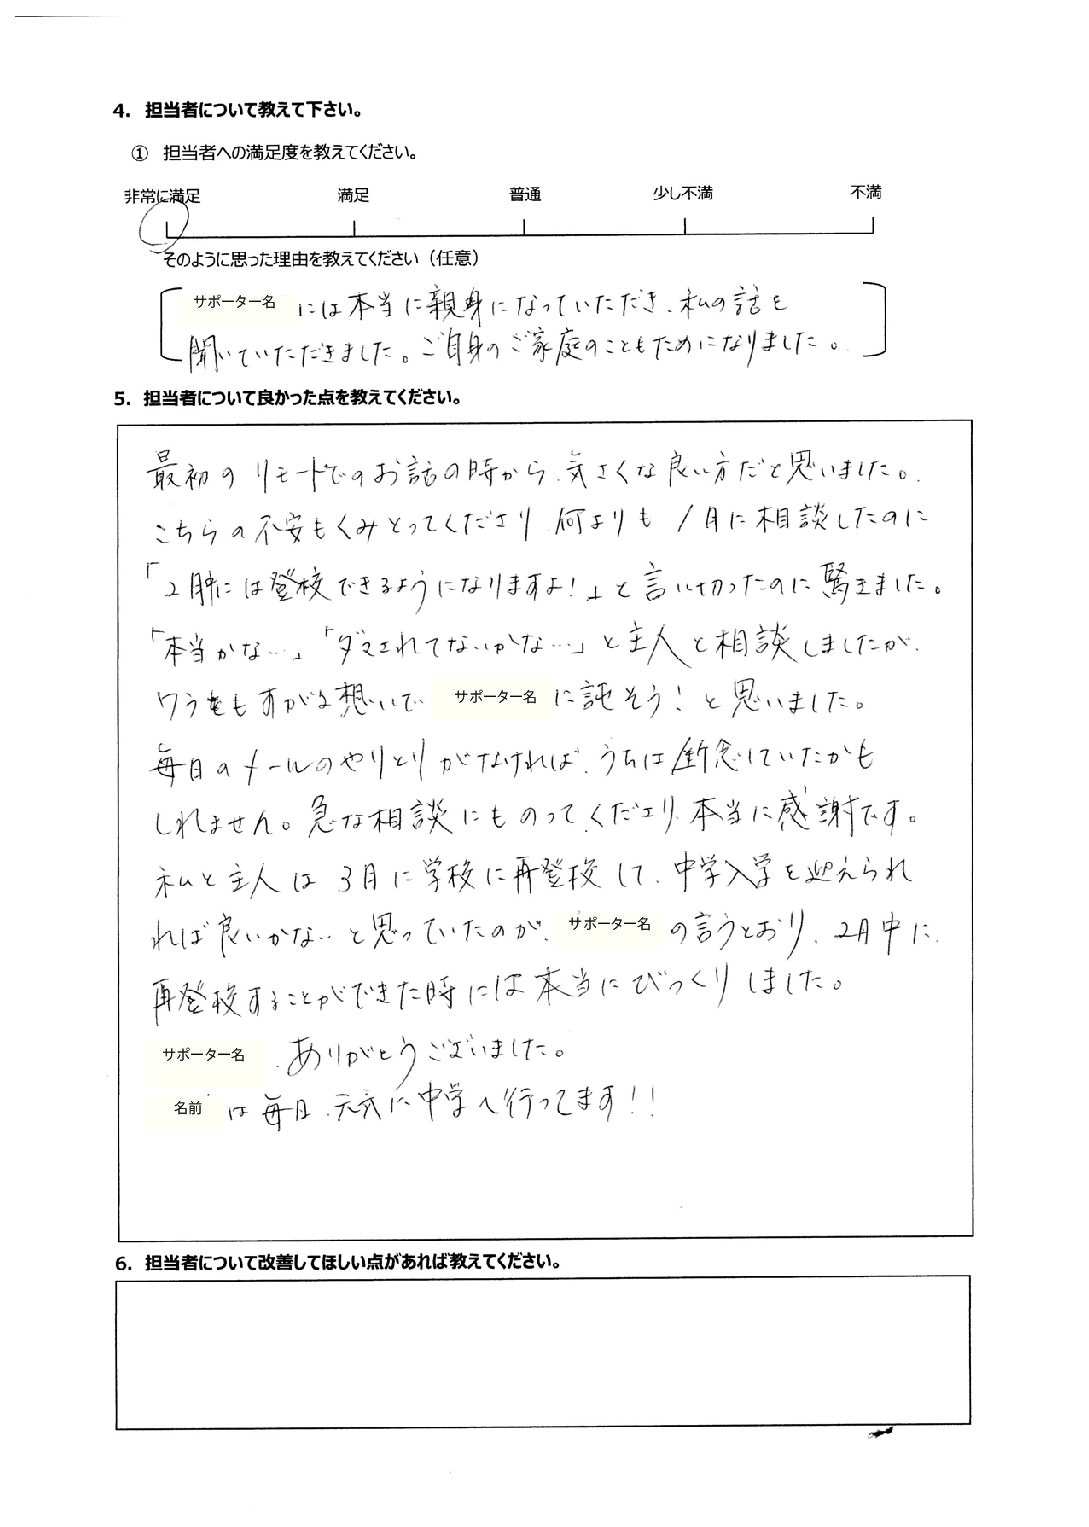 4. 担当者について教えて下さい。
① 担当者への満足度を教えてください。
非常に満足 満足 普通 少し不満 不満
そのように思った理由を教えてください（任意）
サポーター名 には本当に親身になっていただき、私の話を
聞いていただきました。ご自身のご家庭のこともためになりました。
5. 担当者について良かった点を教えてください。
最初のリモートでのお話の時から、気さくな良い方だと思いました。
こちらの不安もくみとってくださり 何よりも 1月に相談したのに
「2月中には登校できるようになりますよ！」と言い切ったのに驚きました。
「本当かな…」「ダマされてないかな…」と主人と相談しましたが、
ワラをもすがる想いで サポーター名 に託そう！と思いました。
毎日のメールのやりとりがなければ、うちは断念していたかも
しれません。急な相談にものってくださり、本当に感謝です。
私と主人は3月に学校に再登校して、中学入学を迎えられ
れば良いかな…と思っていたのが、サポーター名 の言うとおり、2月中に
再登校することができた時には本当にびっくりしました。
サポーター名 、ありがとうございました。
名前 は毎日、元気に中学へ行ってます！！
6. 担当者について改善してほしい点があれば教えてください。